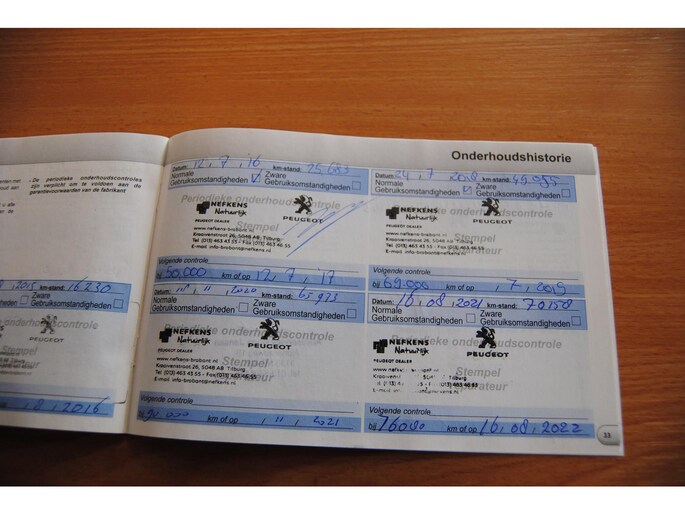 - De periodieke onderhoudscontroles
zijn verplicht om te voldoen aan de
garantievoorwaarden van de fabrikant
2015 km-stand: 16230
Zware
Gebruiksomstandigheden
8, 2016
Onderhoudshistorie
Datum: 12, 7, '16 km-stand: 25.683
Normale Zware
Gebruiksomstandigheden Gebruiksomstandigheden
Periodieke onderhoudscontrole
NEFKENS
Natuurlijk
PEUGEOT
Stempel
PEUGEOT DEALER
www.nefkens-brabant.nl
Kraaivenstraat 26, 5048 AB Tilburg
Tel (013) 463 43 55 - Fax (013) 463 46 55
E-mail info-brabant@nefkens.nl
Volgende controle
bij 50.000 km of op 12, 7, '17
Datum: 24, 7, 2018 km-stand: 49.055
Normale Zware
Gebruiksomstandigheden Gebruiksomstandigheden
Periodieke onderhoudscontrole
NEFKENS
Natuurlijk
PEUGEOT
Stempel
PEUGEOT DEALER
www.nefkens-brabant.nl
Kraaivenstraat 26, 5048 AB Tilburg
Tel (013) 463 43 55 - Fax (013) 463 46 55
E-mail info-brabant@nefkens.nl
Volgende controle
bij 69.000 km of op , 7, 2019
Datum: 11, 2020 km-stand: 65.973
Normale Zware
Gebruiksomstandigheden Gebruiksomstandigheden
Periodieke onderhoudscontrole
NEFKENS
Natuurlijk
PEUGEOT
Stempel
PEUGEOT DEALER
www.nefkens-brabant.nl
Kraaivenstraat 26, 5048 AB Tilburg
Tel (013) 463 43 55 - Fax (013) 463 46 55
E-mail info-brabant@nefkens.nl
Volgende controle
km of op , 11, 2021
Datum: 16, 08, 2021 km-stand: 70158
Normale Zware
Gebruiksomstandigheden Gebruiksomstandigheden
Periodieke onderhoudscontrole
NEFKENS
Natuurlijk
PEUGEOT
Stempel
PEUGEOT DEALER
Tilburg
Volgende controle
bij 76000 km of op 16, 08, 2022
33